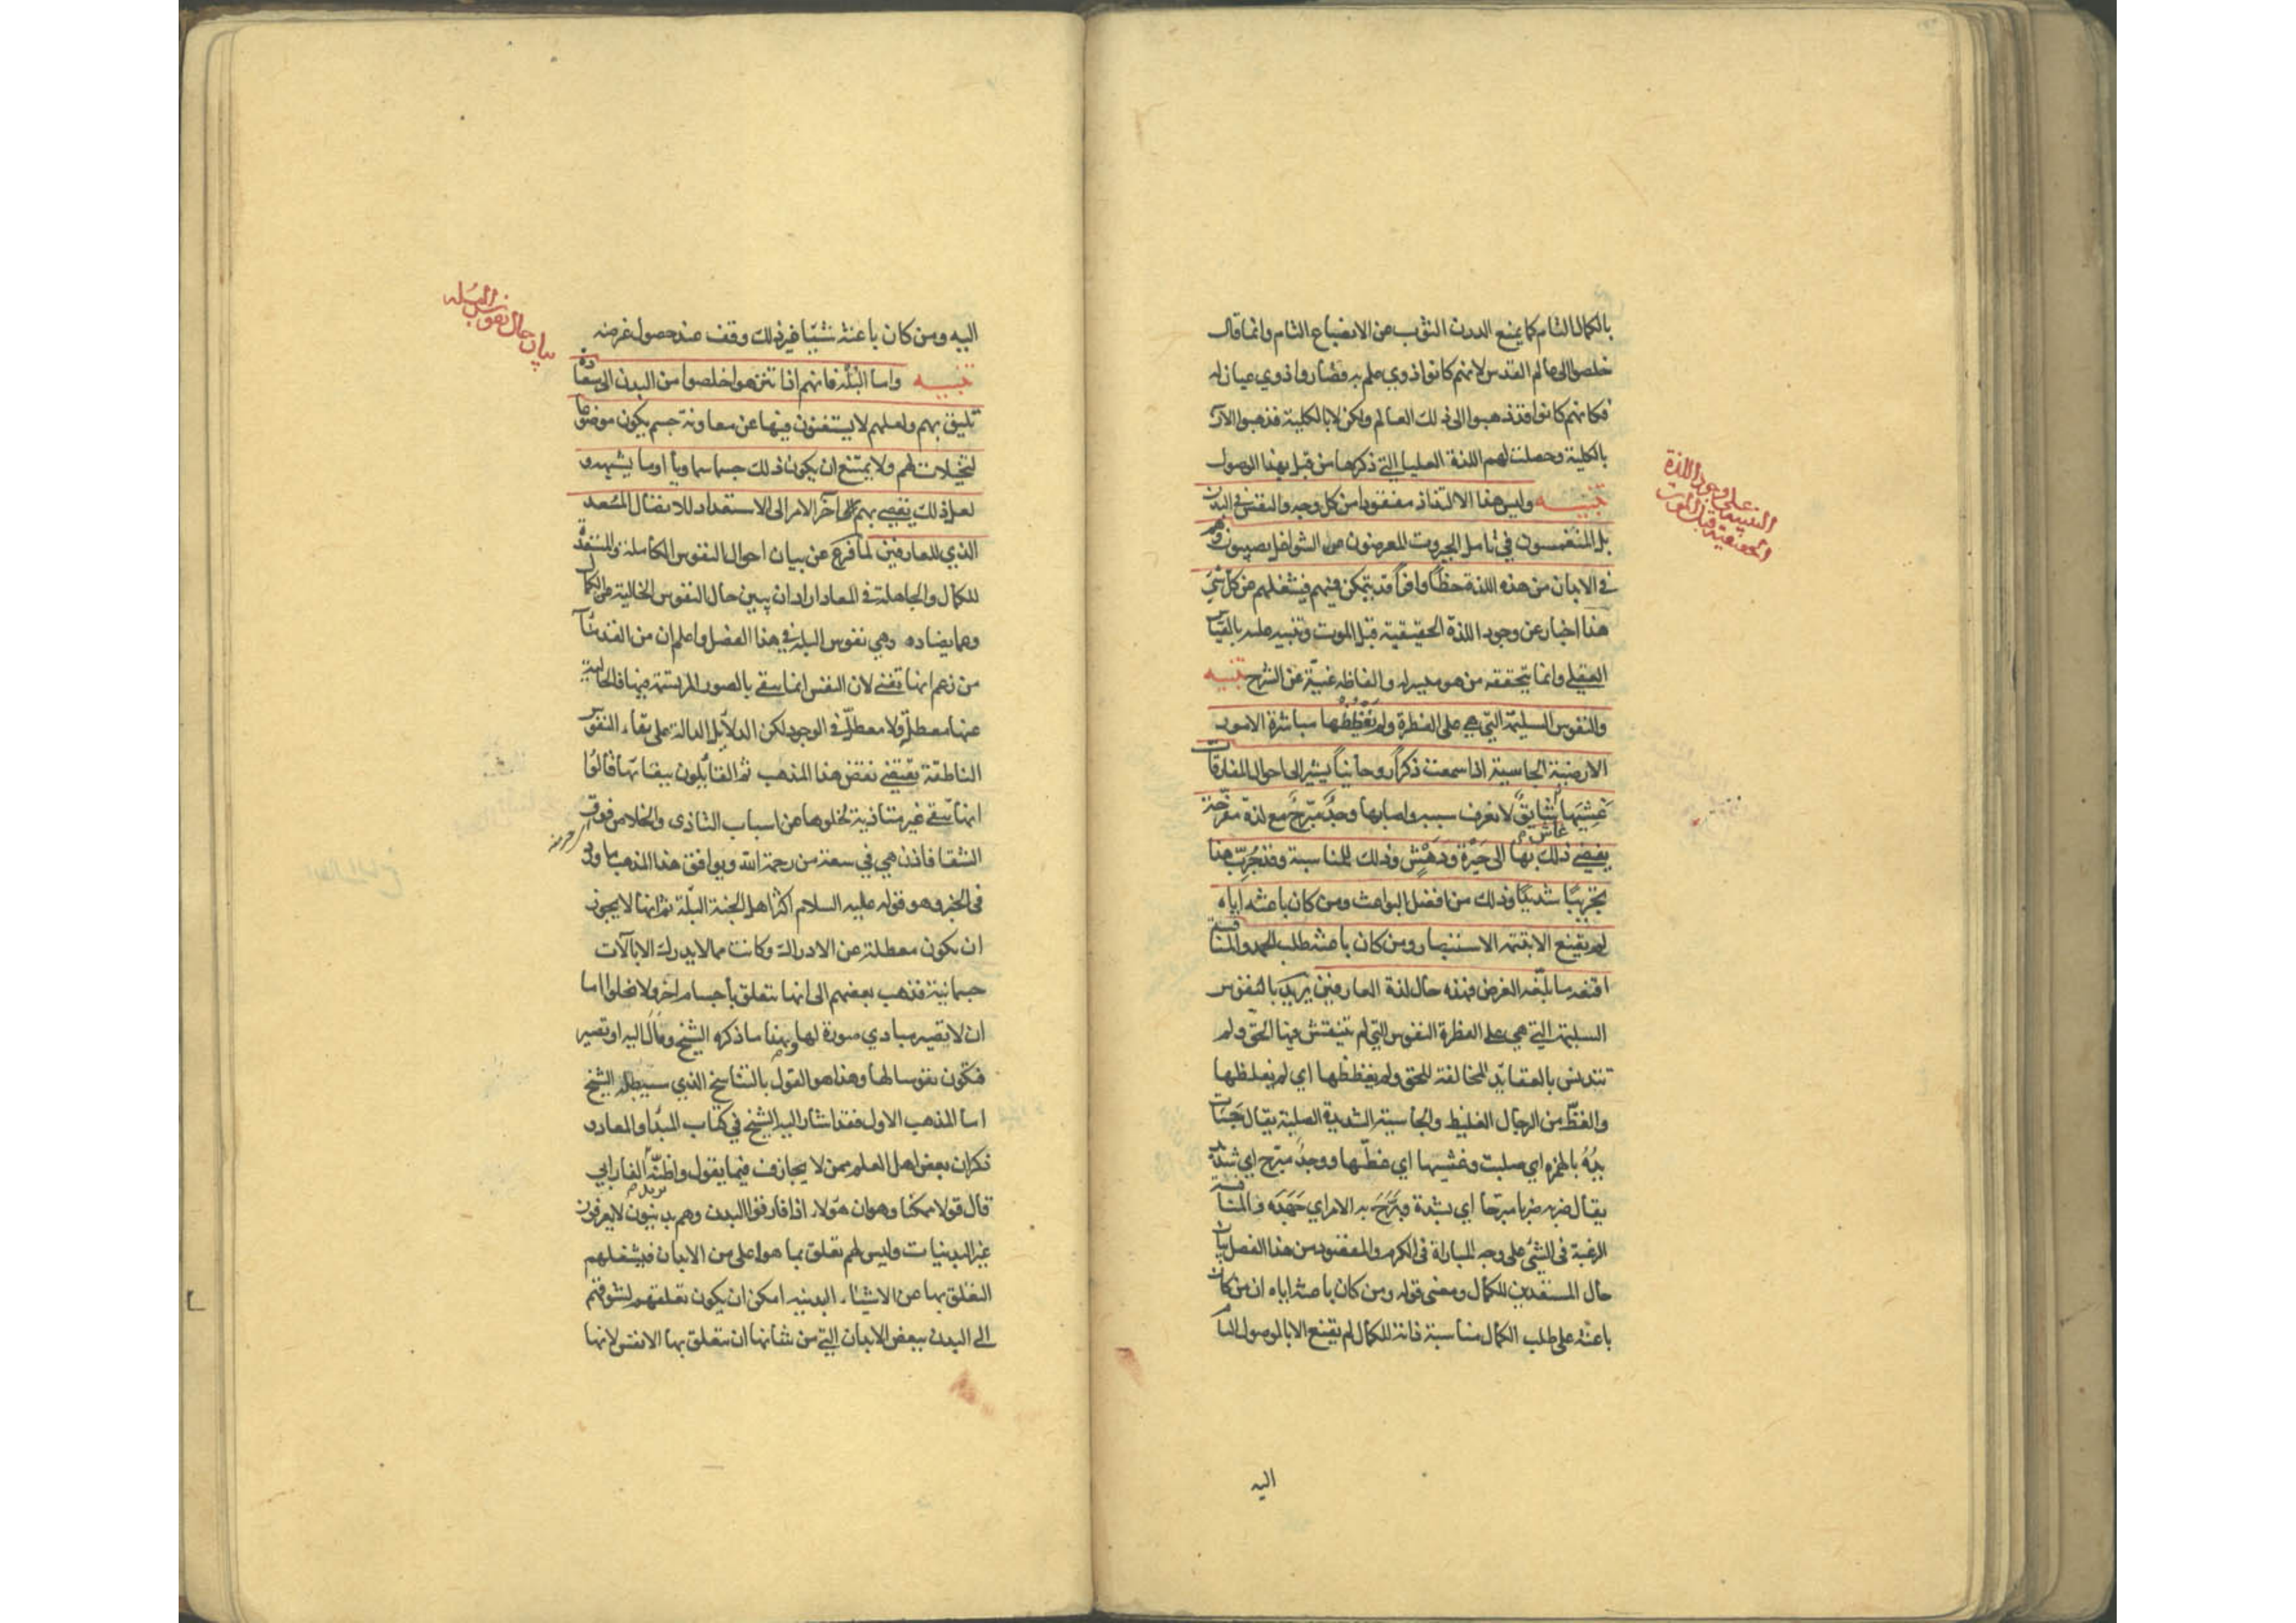 بالكمال التام كما يمنع الدرن الثوب عن الانصباغ التام وانما قال
خلصوا الى عالم القدس لانهم كانوا ذوي علم به فصاروا ذوي عيان له
فكانهم كانوا قد ذهبوا الى ذلك العالم ولكن لا بالكلية فذهبوا الآن
بالكلية وحصلت لهم اللذة العليا التي ذكرها من قبل بهذا الوصول
تنبيه وليس هذا الالتذاذ مفقودا من كل وجه والنفس في البدن
بل المنغمسون في تامل الجبروت المعرضون عن الشواغل يصيبون وهم
في الابدان من هذه اللذة حظًا وافرًا قد يتمكن فيهم فيشغلهم عن كل شيء
هذا اخبار عن وجود اللذة الحقيقية قبل الموت وتنبيه عليه بالقياس
العقلي وانما يتحققه من هو ميسر له والفاظه غنيّة عن الشرح تنبيه
والنفوس السليمة التي هي على الفطرة ولم يُفظِّظْها مباشرة الامور
الارضية الجاسية اذا سمعت ذكرًا روحانيًا يشير الى احوال المفارقات
غَشِيَها غاش شايقٌ لا تعرف سببه واصابها وجدٌ مبرّحٌ مع لذة مفرّحة
يفضي ذلك بها الى حَيْرة ودَهَش وذلك للمناسبة وقد جُرِّب هذا
تجريبًا شديدًا وذلك من افضل البواعث ومن كان باعثه اياه
لم يقنع الا بتتمة الاستبصار ومن كان باعثه طلب الحمد والمنافسة
اقنعه ما بلّغه الغرض فهذه حال لذة العارفين يريد بالنفوس
السليمة التي هي على الفطرة النفوس التي لم تنتقش فيها الحق ولم
تتدنس بالعقايد المخالفة للحق ولم يفظظها اي لم يغلظها
والفظّ من الرجال الغليظ والجاسية الشديدة الصلبة يقال جَسَأت
يدُهُ بالهمزه اي صلبت وغشيها اي غطّيها ووجدٌ مبرّح اي شديد
يقال ضربه ضربا مبرّحا اي بشدة وبَرَّحَ به الامر اي جَهَدَه والمنافسة
الرغبة في الشيء على وجه المباراة في الكرم والمقصود من هذا الفصل بيان
حال المستعدين للكمال ومعنى قوله ومن كان باعثه اياه ان من كان
باعثه على طلب الكمال مناسبة ذاته للكمال لم يقنع الا بالوصول التام
اليه
التنبيه على وجود اللذة
الحقيقية قبل الموت
اليه ومن كان باعثه شيئًا غير ذلك وقف عند حصول غرضه
تنبيه واما البُلْه فانهم اذا تنزهوا خلصوا من البدن الى سعادة
تليق بهم ولعلهم لا يستغنون فيها عن معاونة جسم يكون موضوعا
لتخيلات لهم ولا يمتنع ان يكون ذلك جسما سماويا او ما يشبهه و
لعل ذلك يفضي بهم الى آخر الامر الى الاستعداد للاتصال المُسعد
الذي للعارفين لما فرغ عن بيان احوال النفوس الكاملة والمستعدة
للكمال والجاهلة في المعاد اراد ان يبين حال النفوس الخالية عن الكمال
وعما يضاده وهي نفوس البله في هذا الفصل واعلم ان من القدماء
من زعم انها تفنى لان النفس انما تبقى بالصور المرتسمة فيها فالخالية
عنها معطلّة ولا معطلّ في الوجود لكن الدلايل الدالة على بقاء النفوس
الناطقة يقتضي نقض هذا المذهب ثم القايلون ببقائها قالوا
انها تبقى غير متاذية لخلوها عن اسباب التاذى والخلاص فوق
الشقا فاذن هي في سعة من رحمة الله ويوافق هذا المذهب ما ورد
في الخبر وهو قوله عليه السلام اكثر اهل الجنة البلّه ثم انها لا يجوز
ان يكون معطلة عن الادراك وكانت مما لا يدرك الا بآلات
جسمانية فذهب بعضهم الى انها تتعلق بأجسام اخر ولا يخلوا اما
ان لا تصير مبادي صورة لها وهذا ما ذكره الشيخ ومال اليه او تصير
فتكون نفوسا لها وهذا هو القول بالتناسخ الذي سيبطله الشيخ
اما المذهب الاول فقد اشار اليه الشيخ في كتاب المبدأ والمعاد و
ذكر ان بعض اهل العلم ممن لا يجازف فيما يقول واظنّه الفارابي
قال قولا ممكنا وهو ان هؤلاء اذا فارقوا البدن وهم بدنيون لا يعرفون
غير البدنيات وليس لهم تعلق بما هو اعلى من الابدان فيشغلهم
التعلق بها عن الاشياء البدنيه امكن ان يكون تعلقهم لشوقهم
الى البدن ببعض الابدان التي من شانها ان تتعلق بها الانفس لانها
بيان حال نفوس البُله